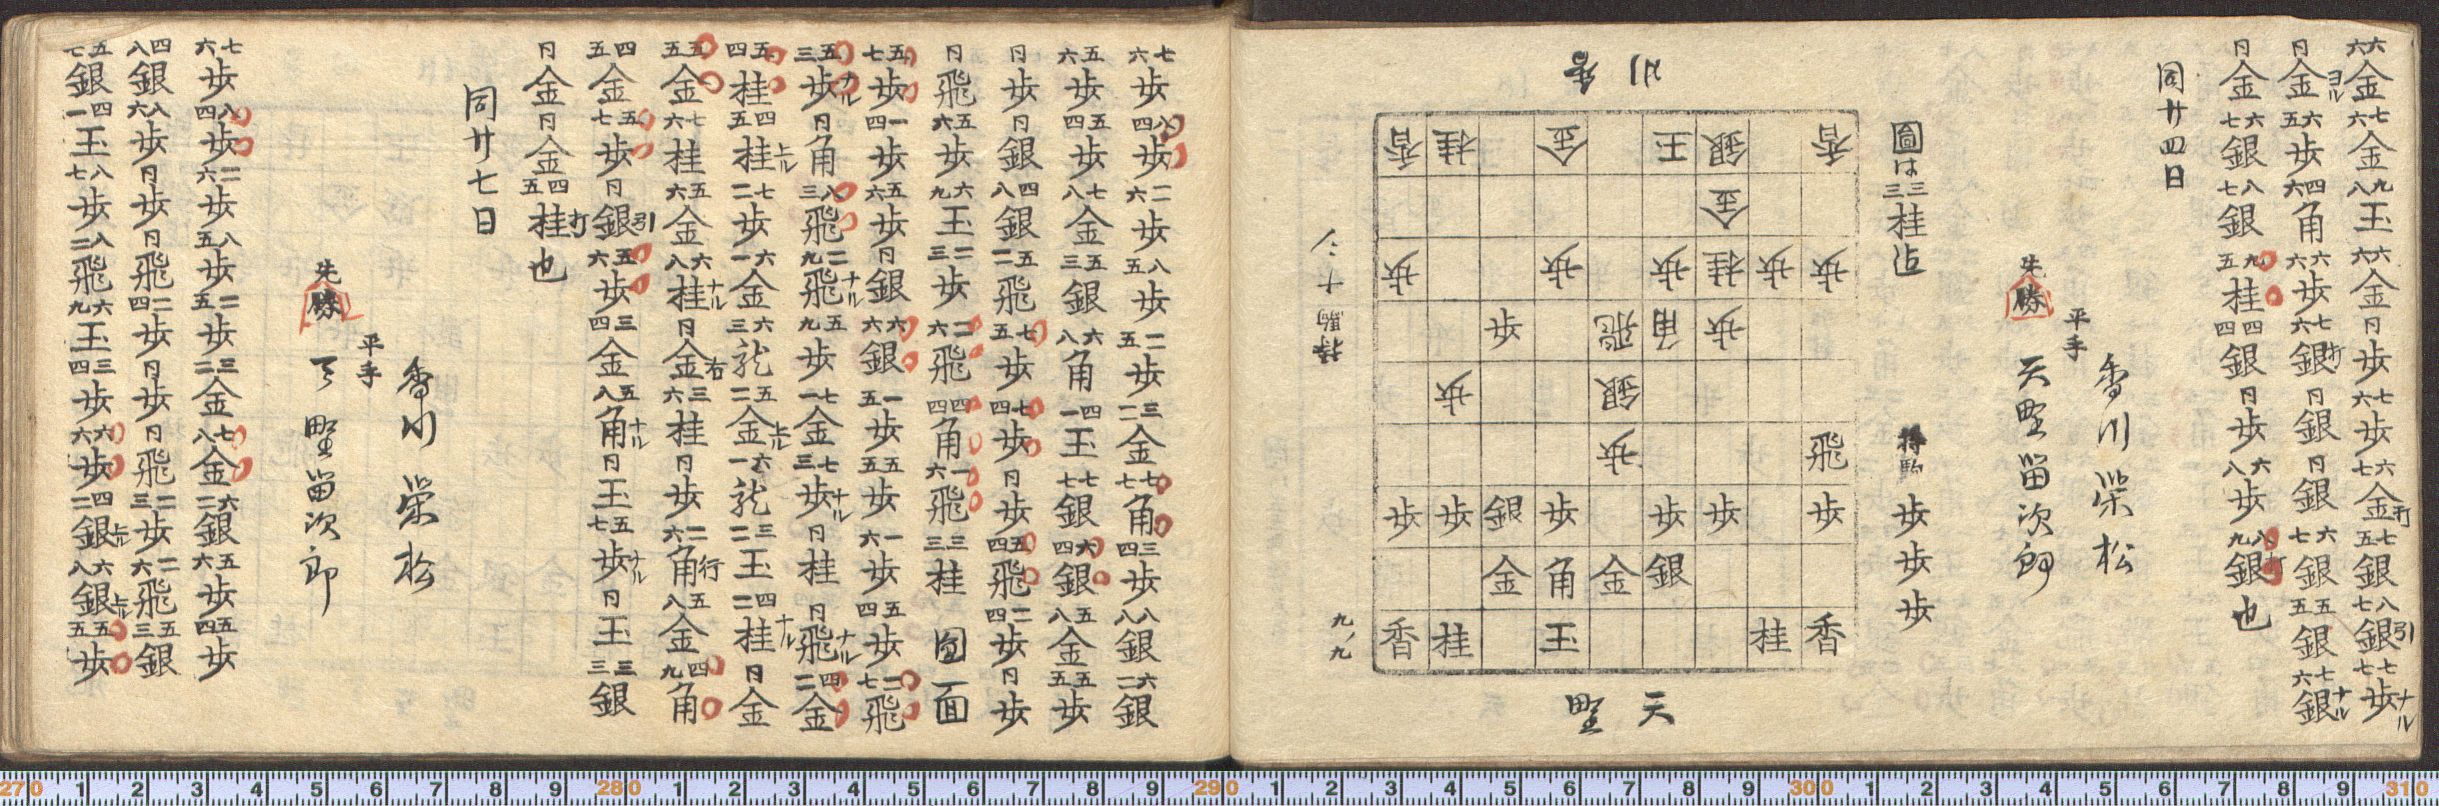 六六金七六金九八玉六六金同歩七六歩六七金打七五銀八七銀引七七歩ナル
同金ヨル六五歩四六角六六歩七六銀打同銀同銀六七銀五五銀七六銀ナル
同金六七銀八七銀九五桂四四銀同歩六八歩八九銀打也
同廿四日
平手 香川栄松
先勝 天野留次郎
圖は三三桂迠
持駒 歩歩歩
香川
香桂金王銀香
金
歩歩歩桂歩歩
歩飛角歩
歩銀
歩飛
歩歩銀歩歩歩歩
金角金銀
香桂玉桂香
天野
持駒
七六歩八四歩二六歩八五歩二五歩三二金七七角三四歩八八銀六二銀
五六歩五四歩七八金五三銀六八角四一玉七七銀六四銀五八金五五歩
同歩同銀四八銀五二飛七五歩七四歩同歩五四飛二四歩同歩
同飛五六歩六九玉二三歩二六飛四四角一六飛三三桂図面
五七歩一四歩五六歩同銀六六銀一五歩五五歩一六歩五四歩二七飛
五三歩ナル同角八三飛二九飛ナル五九歩七一金七三歩ナル同桂同飛ナル四二金
五四桂四五桂上ル七二歩六一金六三龍五二金上ル六一龍三二玉四二桂ナル同金
五五金七六桂五六金六八桂ナル同金右三六桂同歩二六角行五八金四九角
四五金五七歩同銀引五六歩三四金五八角ナル同玉五七歩ナル同玉三三銀
同金同金四五桂打也
同廿七日
平手 香川栄松
先勝 天野留次郎
七六歩八四歩二六歩八五歩二五歩三二金七八金六二銀五六歩五四歩
四八銀八六歩同歩同飛二四歩同歩同飛二三歩二六飛五三銀
五七銀四一玉八七歩八二飛六九玉三四歩六六歩四二銀上ル六八銀上ル五五歩
270 1 2 3 4 5 6 7 8 9 280 1 2 3 4 5 6 7 8 9 290 1 2 3 4 5 6 7 8 9 300 1 2 3 4 5 6 7 8 9 310